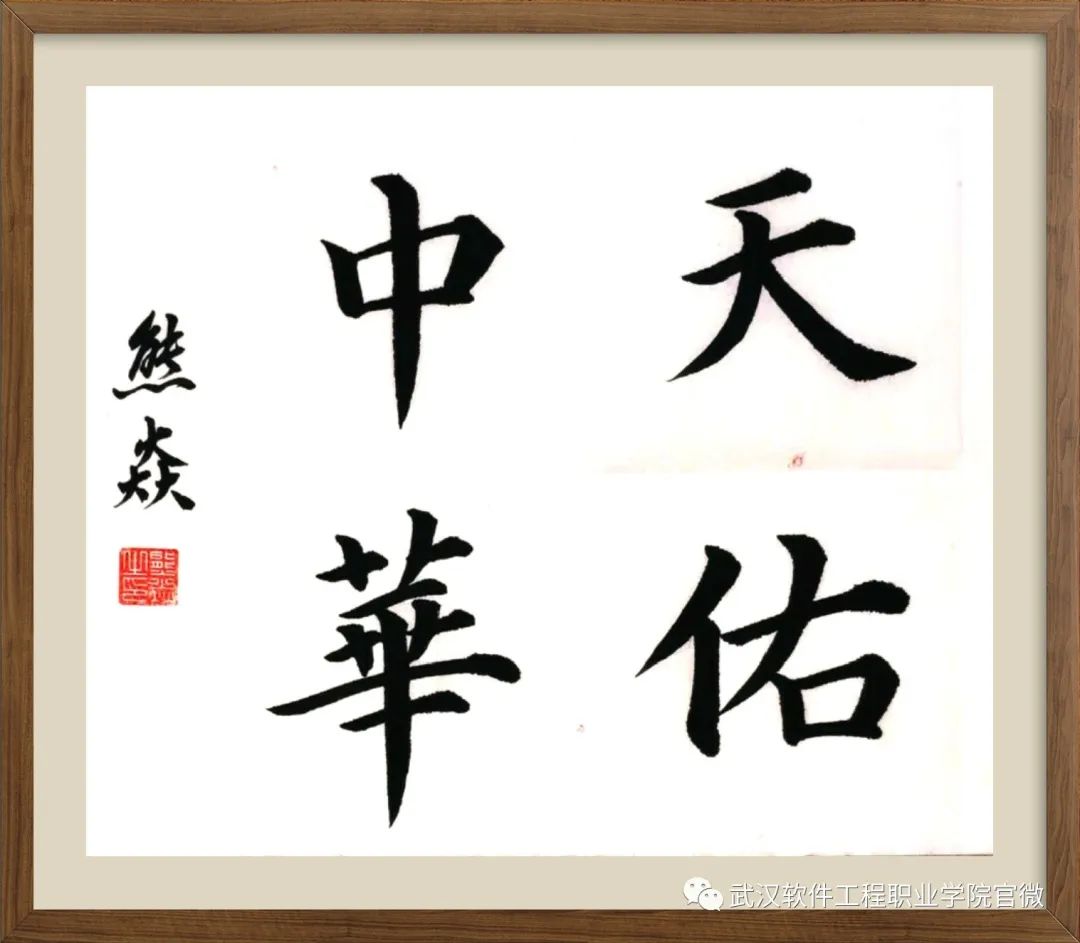 天佑
中華
熊焱
武汉软件工程职业学院官微